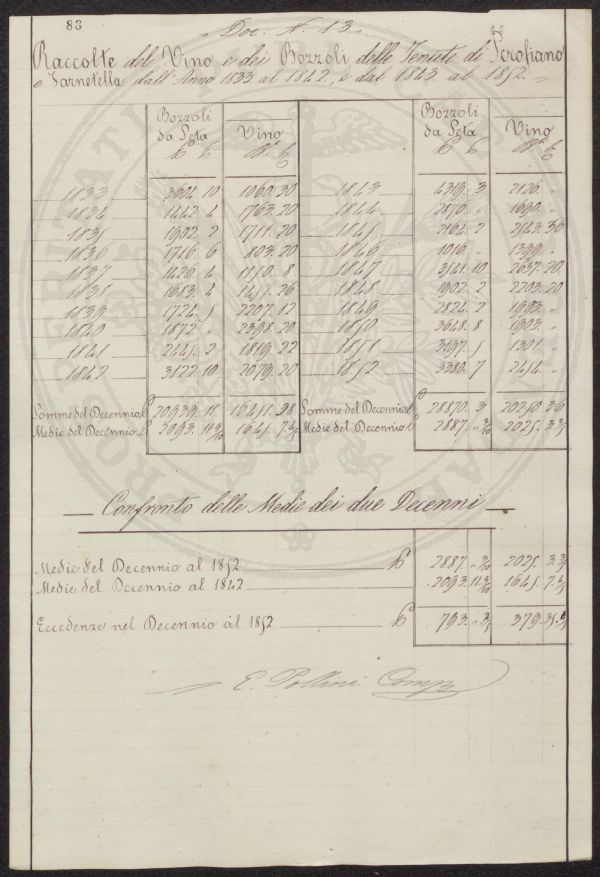 83
Doc. N. 13.
Raccolte del Vino e dei Bozzoli delle Tenute di Scrofiano
e Farnetella dall'Anno 1833 al 1842, e dal 1843 al 1852.
Bozzoli da Seta Vino Bozzoli da Seta Vino
1833 3604. 10 1060. 30 1843 4319. 3 2126. "
1834 1442. 4 1763. 20 1844 2870. " 1690. "
1835 1902. 2 1711. 20 1845 2164. 2 2543. 36
1836 1746. 6 803. 20 1846 1016. " 1399. "
1837 1436. 4 1150. 8 1847 3541. 10 2637. 20
1838 1683. 4 1457. 26 1848 1902. 2 2203. 20
1839 1724. 5 2207. 12 1849 2824. 2 1993. "
1840 1872. " 2398. 20 1850 3648. 8 1903. "
1841 2445. 2 1819. 22 1851 3197. 5 1301. "
1842 3122. 10 2079. 20 1852 3380. 7 2454. "
Somme del Decennio 20939. 11 16451. 38 Somme del Decennio 28870. 3 20250. 36
Medie del Decennio 2093. 11 9/10 1645. 7 4/5 Medie del Decennio 2887. " 3/10 2025. 3 3/5
Confronto delle Medie dei due Decenni
Medie del Decennio al 1852 2887. " 3/10 2025. 3 3/5
Medie del Decennio al 1842 2093. 11 9/10 1645. 7 4/5
Eccedenze nel Decennio al 1852 793. " 2/5 379. 35 4/5
E. Pollini Comp